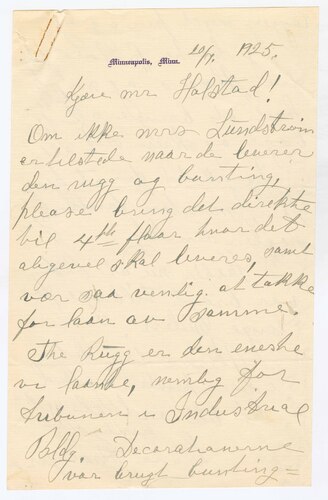 Minneapolis, Minn. 20/7. 1925.
Kjære mr Halstad!
Om ikke mrs Lundstrøm
er tilstede naar de leverer
den rugg og bunting,
please bring det direkte
til 4th floor hvor det
alligevel skal leveres, samt
vær saa venlig at takke
for laan av samme.
The Rugg er den eneste
vi laante, nemlig for
tribunen i Industrial
Bldg. Decorationerne
var brugt bunting=